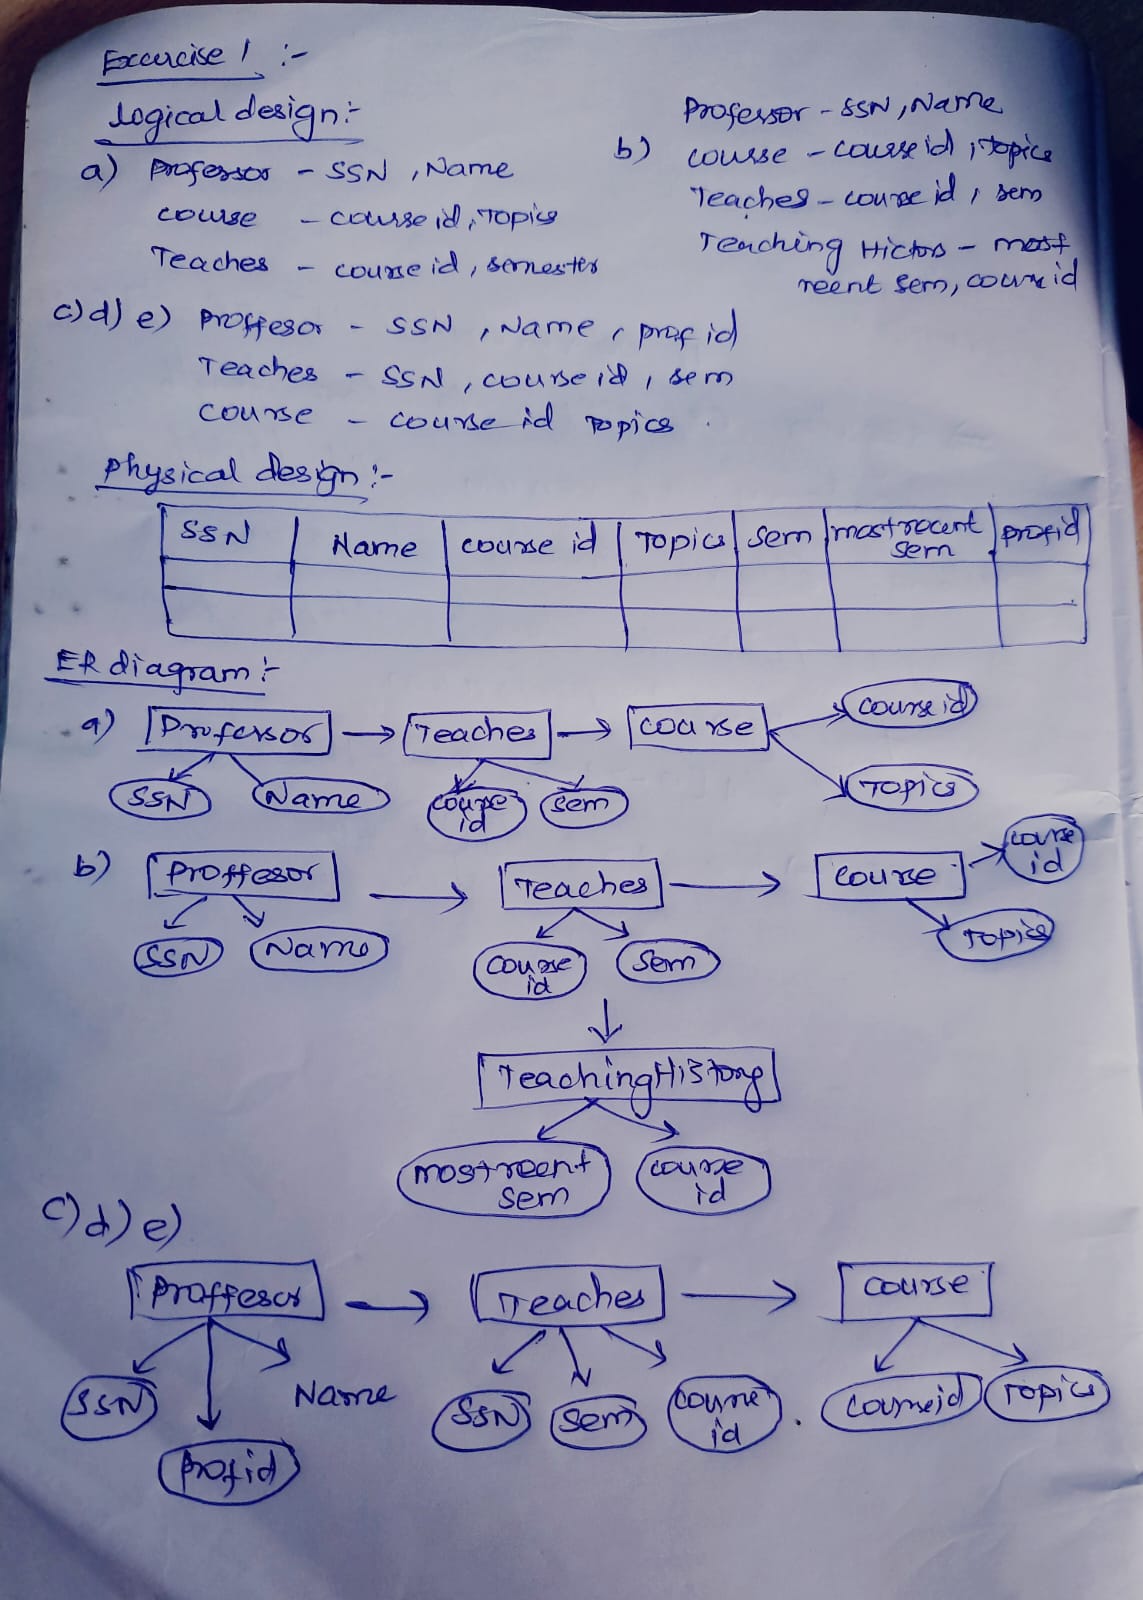 Excercise 1 :-
Logical design:-
a) Professor - SSN, Name
course - course id, Topics
Teaches - course id, semester
b) Professor - SSN, Name
course - course id, topics
Teaches - course id, sem
Teaching - most
reent sem, course id
c) d) e) Proffesor - SSN, Name, prof id
Teaches - SSN, course id, sem
course - course id Topics.
Physical design:-
SSN Name course id Topics Sem most recent profid
sem
ER diagram:-
a) Professor Teaches course course id
SSN Name course id sem Topics
b) Proffesor Teaches course course id
SSN Name course id Sem Topics
Teaching History
most reent sem course id
c) d) e)
Proffesor Teaches course
SSN Name SSN Sem course id course id Topics
Profid